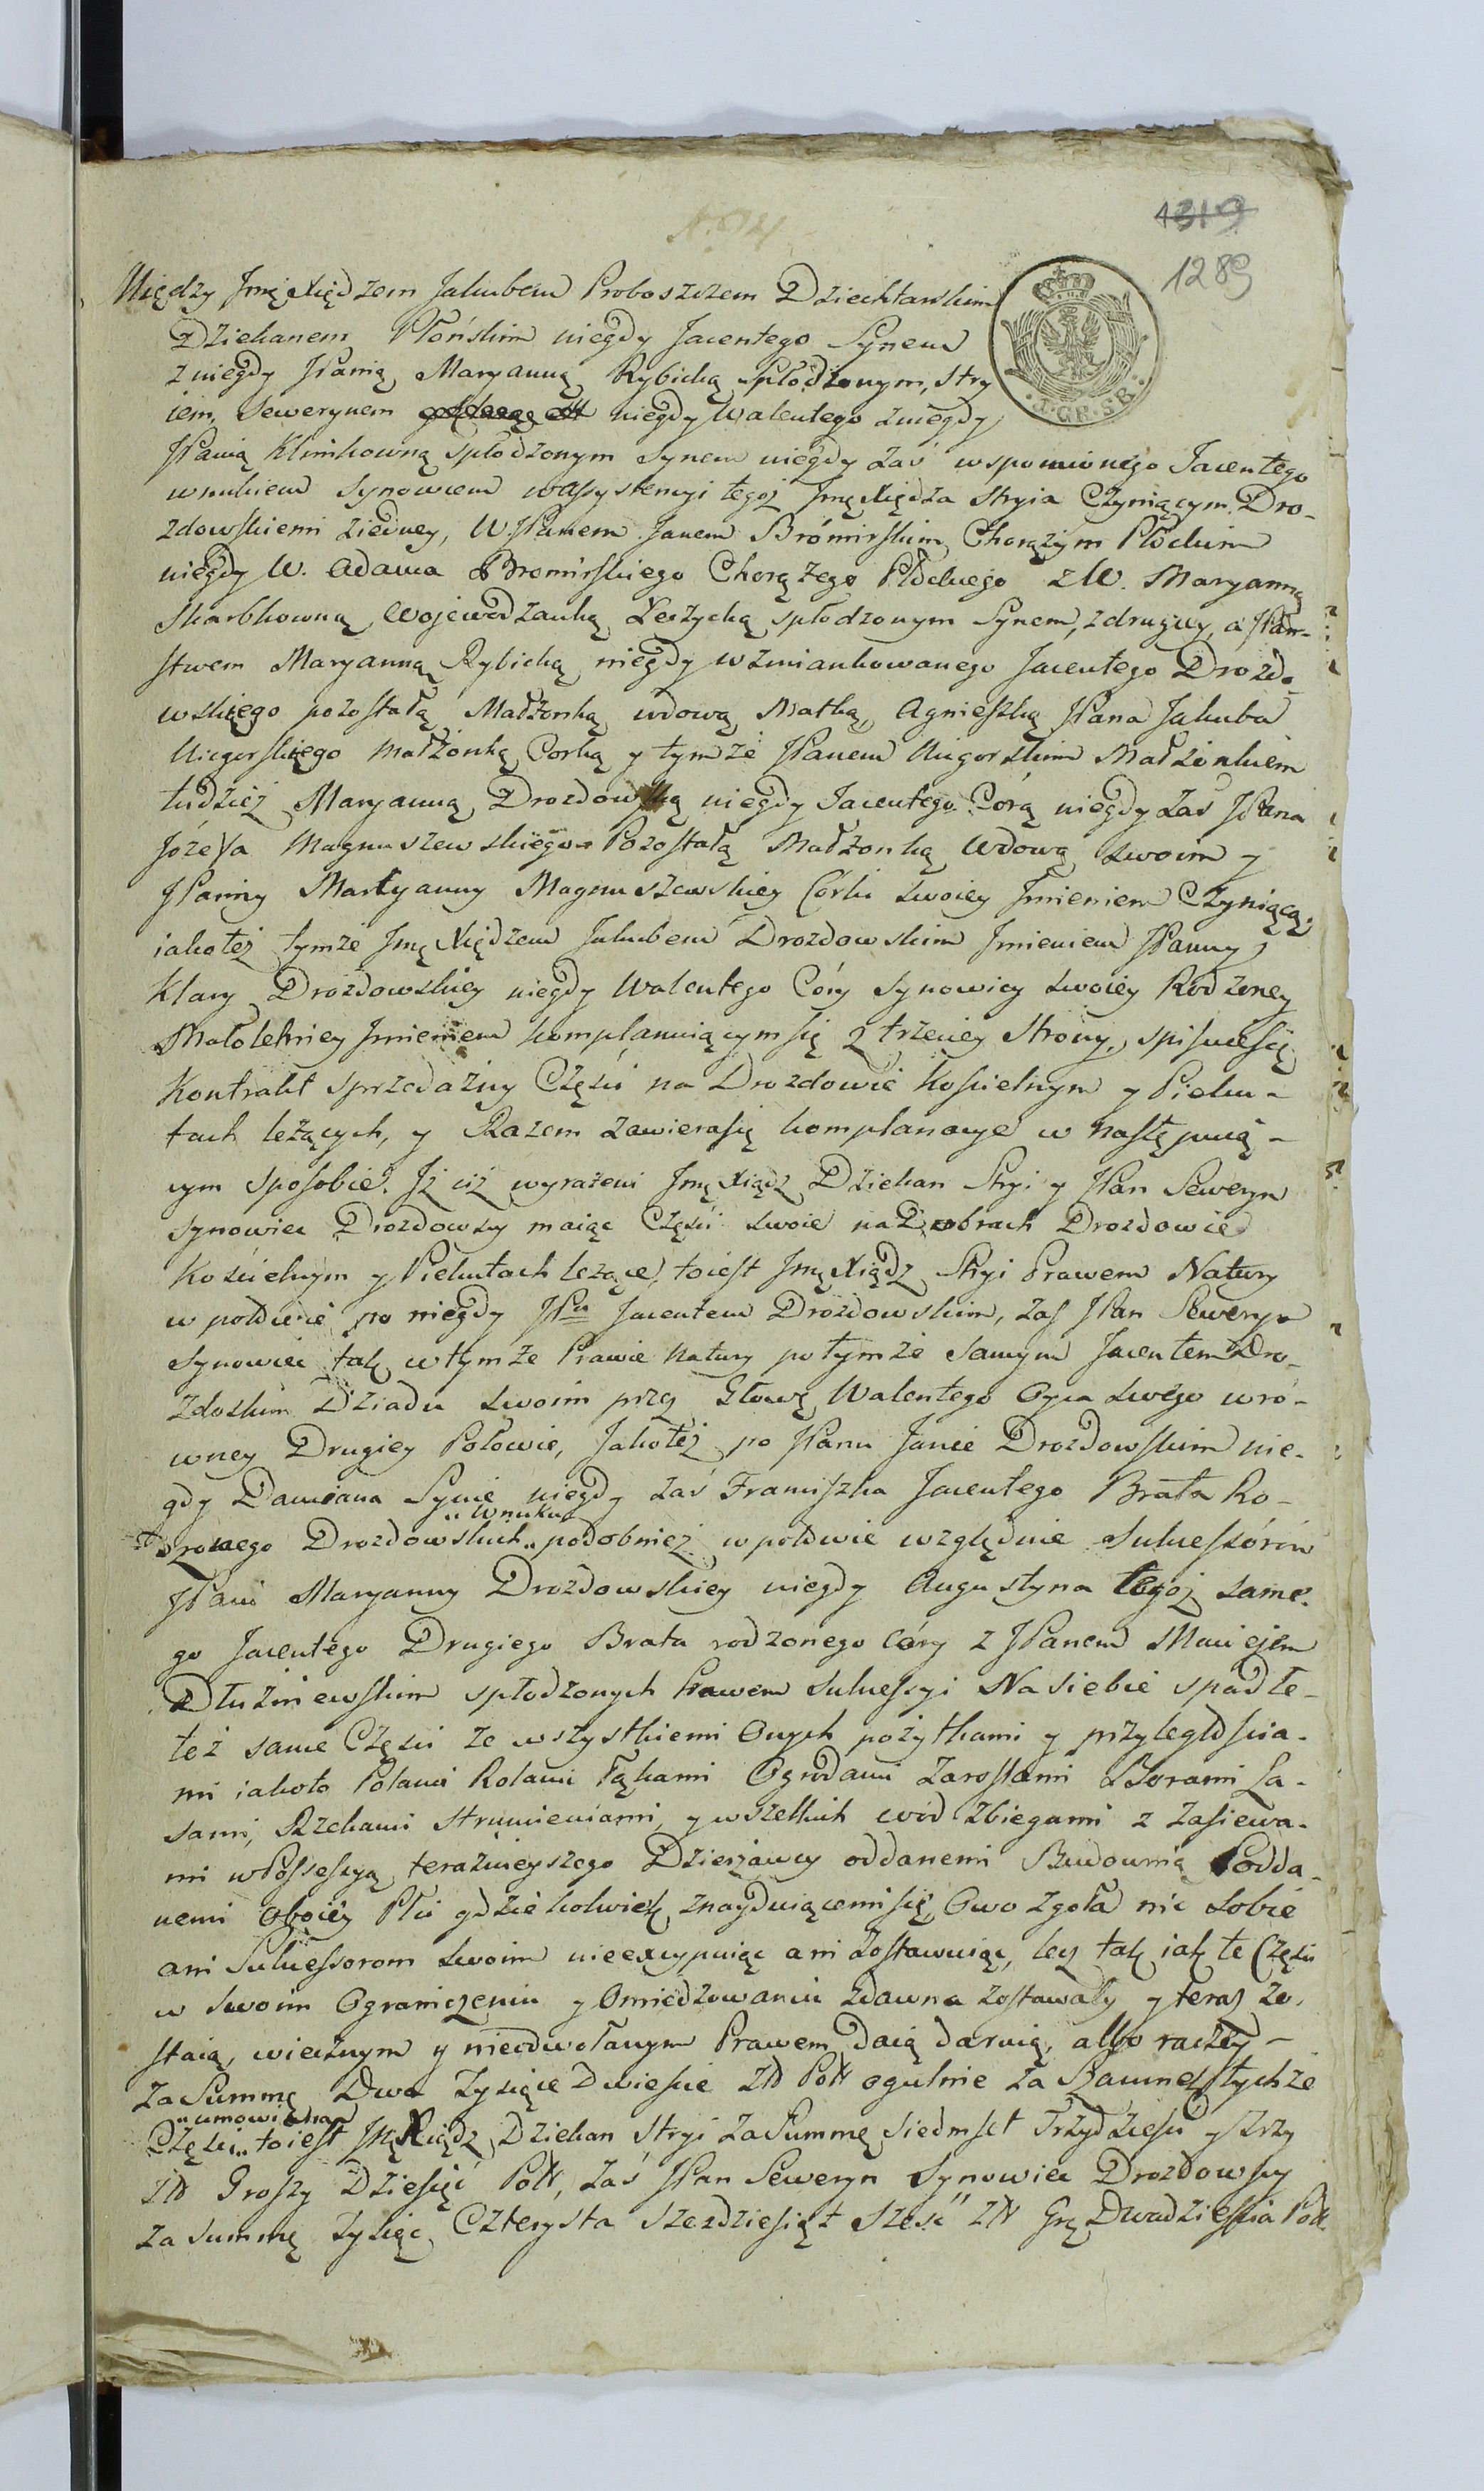 1319
1289
N. 94
1. GR. SR.
Między Jmę Xiędzem Jakubem Proboszczem Dziektarskim
Dziekanem Płońskim niegdy Jacentego Synem
z niegdy JPanią Maryanną Rybicką spłodzonym, Stry
iem, Sewerynem niegdy Walentego z niegdy
JPanią Klimkowną spłodzonym Synem niegdy zaś wspomnionego Jacentego
wnukiem Synowcem w assystencyi tegoż Jmę Xiędza Stryia Czyniącym. Dro-
zdowskiemi z iedney, W. JPanem Janem Brómirskim Chorążym Płockim
niegdy W. Adama Bromirskiego Chorążego Płockiego z W. Maryanną
Skarbkowną Wojewodzanką Łęczycką spłodzonym Synem, z drugiey, a JPań-
stwem Maryanną Rybicką niegdy wzmiankowanego Jacentego Drozdo-
wskiego pozostałą Małżonką wdową Matką, Agnieszką JPana Jakuba
Uiegorskiego Małżonką Corką y tymże JPanem Uigorskim Małżonkiem
tudzież Maryanną Drozdowską niegdy Jacentego Corą niegdy zaś JPana
Józefa Magnuszewskiego Pozostałą Małżonką Wdową swoim y
JPanny Maryanny Magnuszewskiey Córki swoiey Jmieniem Czyniącą,
iakoteż tymże Jmę Xiędzem Jakubem Drozdowskim Jmieniem JPanny
Klary Drozdowskiey niegdy Walentego Córy Synowicy swoiey Rodzoney
Małoletniey Jmieniem komplanuiącym się z trzeciey Strony, spisuie się
Kontrakt sprzedażny Części na Drozdowie Kościelnym y Pieku-
tach leżących, y Razem zawiera się komplanacye w następuią-
cym sposobie. Jż ciż wyrażeni Jmę Xiądz Dziekan Stryi y JPan Seweryn
Synowiec Drozdowscy maiąc Części swoie na Dobrach Drozdowie
Kościelnym y Piekutach leżące, toiest Jmę Xiądz Stryi Prawem Natury
w połowie po niegdy JPu Jacentem Drozdowskim, zaś JPan Seweryn
Synowiec tak w tymże Prawie Natury po tymże samym Jacentem Dro-
zdoskim Dziadu swoim przez Głowę Walentego Oyca swego w ró-
wney Drugiey Połowie, Jakoteż po JPanu Janie Drozdowskim nie-
gdy Damiana Synie niegdy zaś Franciszka Jacentego Brata Ro-
dzonego Drozdowskich „Wnuku„ podobnież w połowie względnie Sukcessórów
JPani Maryanny Drozdowskiey niegdy Augustyna tegoż same-
go Jacentego Drugiego Brata rodzonego Córy z JPanem Maciejem
Dłużniewskim spłodzonych Prawem Sukcessyi Na siebie spadłe-
też same Części ze wszystkiemi Onych pożytkami y przyległościa-
mi iakoto Polami Rolami Łąkami Ogrodami Zaroslami Borami La-
sami, Rzekami strumieniami, y wszelkich wód zbiegami z zasiewa-
mi w Possessyą teraznieyszego Dzierżawcy oddanemi Budownią Podda-
nemi oboiey Płci gdziekolwiek znayduiącemi się, Owo zgoła nic sobie
ani Sukcessorom swoim nieexcypuiąc ani zostawuiąc, lecz tak iak te Części
w swoim Ograniczeniu y Omiedzowaniu zdawna zostawały y teraz zo-
staią, wiecznym y nieodwołanym Prawem daią daruią, albo raczey-
za Summę Dwa Tysiące Dwieście Złł Poll ogulnie za tychże
Części „umowioną„ toiest Jmę Xiądz Dziekan Stryi za Summę siedmset Trzydzieści y Trzy
Złł Groszy Dziesięć Poll, zaś JPan Seweryn Synowiec Drozdowscy
za summę Tysiąc Czterysta sześdziesiąt sześć Złł Grę Dwadzieścia Poll